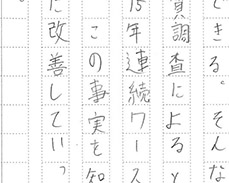 できる。そんな
員調査によると
15年連続ワース
この事実を知
に改善していっ
。